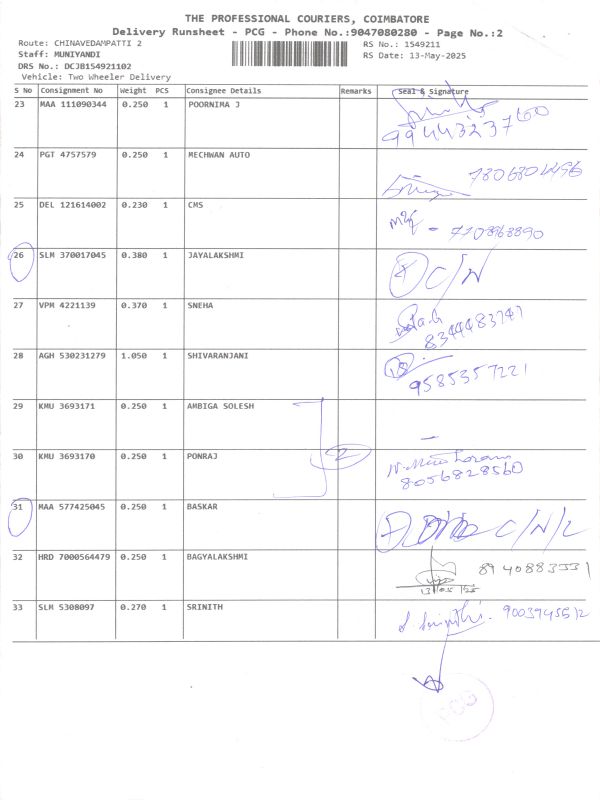 THE PROFESSIONAL COURIERS, COIMBATORE
Delivery Runsheet - PCG - Phone No.:9047080280 - Page No.:2
Route: CHINAVEDAMPATTI 2 RS No.: 1549211
Staff: MUNIYANDI RS Date: 13-May-2025
DRS No.: DCJB154921102
Vehicle: Two Wheeler Delivery
S No Consignment No Weight PCS Consignee Details Remarks Seal & Signature
23 MAA 111090344 0.250 1 POORNIMA J
24 PGT 4757579 0.250 1 MECHWAN AUTO
25 DEL 121614002 0.230 1 CMS 7708968890
26 SLM 370017045 0.380 1 JAYALAKSHMI C/N
27 VPM 4221139 0.370 1 SNEHA
8344483741
28 AGH 530231279 1.050 1 SHIVARANJANI
9585357221
29 KMU 3693171 0.250 1 AMBIGA SOLESH -
30 KMU 3693170 0.250 1 PONRAJ 2
8056828560
31 MAA 577425045 0.250 1 BASKAR C/N/L
32 HRD 7000564479 0.250 1 BAGYALAKSHMI
13/05/25
33 SLM 5308097 0.270 1 SRINITH
PCG